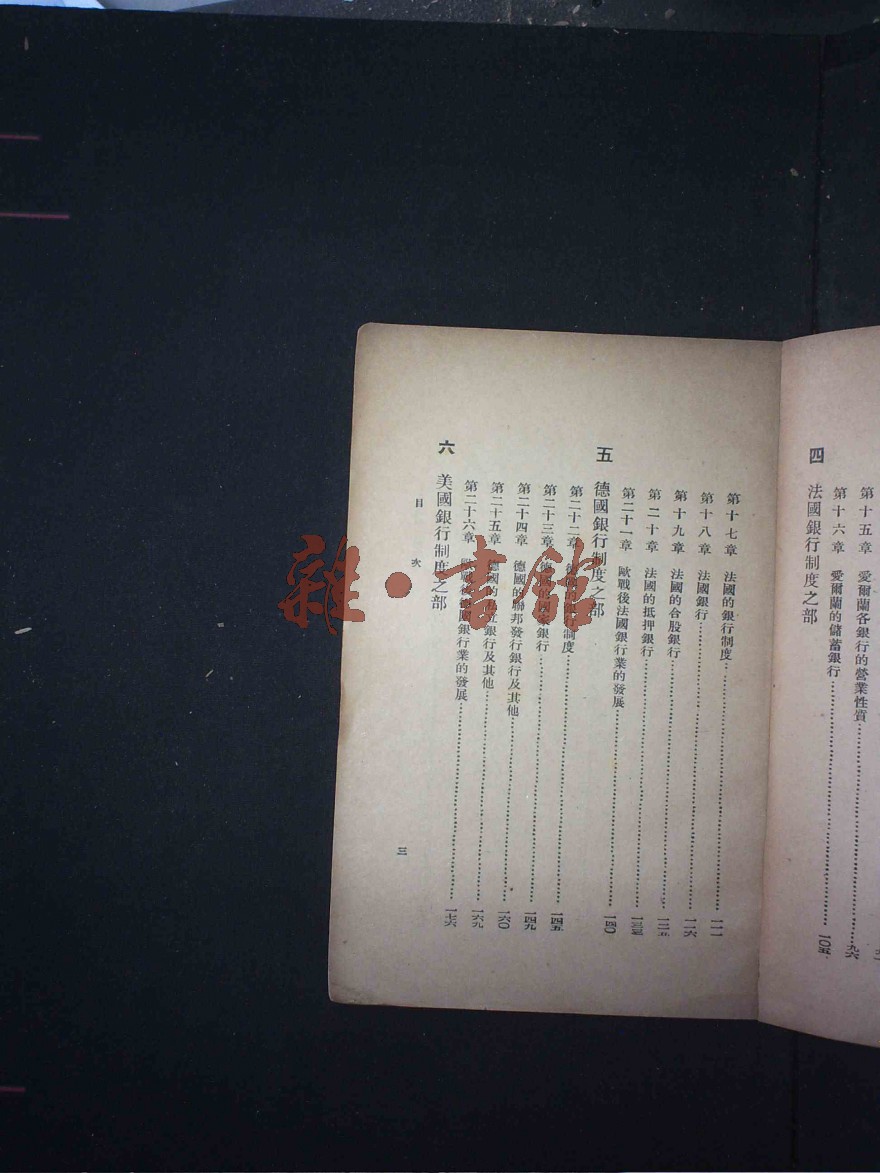 第十五章　愛爾蘭各銀行的營業性質……九六
第十六章　愛爾蘭的儲蓄銀行……一〇五
四　法國銀行制度之部
第十七章　法國的銀行制度……一一一
第十八章　法國銀行……一一六
第十九章　法國的合股銀行
第二十章　法國的抵押銀行
第二十一章　歐戰後法國銀行業的發展……一四〇
五　德國銀行制度之部
第二十二章　制度……一四五
第二十三章　德國的國家銀行……一四九
第二十四章　德國的聯邦發行銀行及其他……一六〇
第二十五章　德國的　銀行及其他……一六九
第二十六章　歐戰後德國銀行業的發展……一七六
六　美國銀行制度之部
目次
三
雜·書館